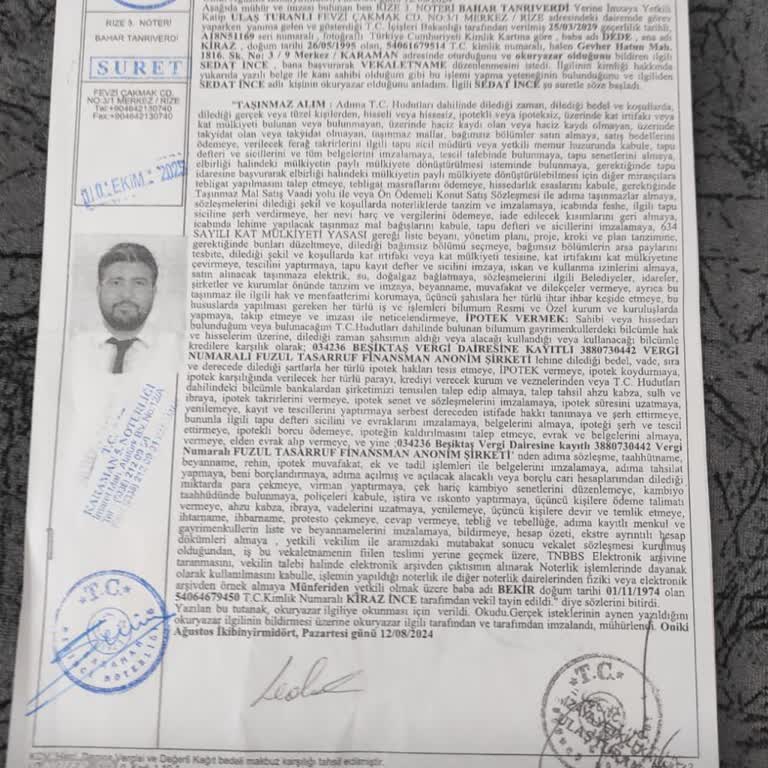 RİZE 3. NOTERİ
BAHAR TANRIVERDİ
SURET
FEVZİ ÇAKMAK CD.
NO:3/1 MERKEZ / RİZE
Tel:+904642130740
Fax:+904642130740
EKİM 2025
KARAMAN 5. NOTERLİĞİ
Aşağıda mühür ve imzası bulunan ben RİZE 3. NOTERİ BAHAR TANRIVERDİ Yerine İmzaya Yetkili
Katip ULAŞ TURANLI FEVZİ ÇAKMAK CD. NO:3/1 MERKEZ / RİZE adresindeki dairemde görev
yaparken yanıma gelen ve gösterdiği T.C. İçişleri Bakanlığı tarafından verilmiş 25/03/2029 geçerlilik tarihli,
A18N51169 seri numaralı, fotoğraflı Türkiye Cumhuriyeti Kimlik Kartına göre , baba adı DEDE, ana adı
KİRAZ , doğum tarihi 26/05/1995 olan, 54061679514 T.C. kimlik numaralı, halen Gevher Hatun Mah.
1816. Sk. No: 3 / 9 Merkez / KARAMAN adresinde oturduğunu ve okuryazar olduğunu bildiren ilgili
SEDAT İNCE , bana başvurarak VEKALETNAME düzenlenmesini istedi. İlgilinin kimliği hakkında
yukarıda yazılı belge ile kanı sahibi olduğum gibi bu işlemi yapma yeteneğinin bulunduğunu ve ilgiliden
SEDAT İNCE adlı kişinin okuryazar olduğunu anladım. İlgili SEDAT İNCE şu suretle söze başladı.
"TAŞINMAZ ALIM : Adıma T.C. Hudutları dahilinde dilediği zaman, dilediği bedel ve koşullarda,
dilediği gerçek veya tüzel kişilerden, hisseli veya hissesiz, ipotekli veya ipoteksiz, üzerinde kat irtifakı veya
kat mülkiyeti bulunan veya bulunmayan, üzerinde haciz kaydı olan veya haciz kaydı olmayan, üzerinde
takyidat olan veya takyidat olmayan, taşınmaz malları, bağımsız bölümler satın almaya, satış bedellerini
ödemeye, verilecek ferağ takrirlerini ilgili tapu sicil müdürü veya yetkili memur huzurunda kabule, tapu
defteri ve sicillerini ve tüm belgelerini imzalamaya, tescil talebinde bulunmaya, tapu senetlerini almaya,
elbirliği halindeki mülkiyetin paylı mülkiyete dönüştürülmesi isteminde bulunmaya, gerektiğinde tapu
idaresine başvurarak elbirliği halindeki mülkiyetin paylı mülkiyete dönüştürülebilmesi için diğer mirasçılara
tebligat yapılmasını talep etmeye, tebligat masraflarını ödemeye, hissedarlık esaslarını kabule, gerektiğinde
Taşınmaz Mal Satış Vaadi yohi ile veya Ön Ödemeli Konut Satış Sözleşmesi ile adıma taşınmazlar almaya,
sözleşmelerini dilediği şekil ve koşullarda noterliklerde tanzim ve imzalamaya, icabında feshe, ilgili tapu
siciline şerh verdirmeye, her nevi harç ve vergilerini ödemeye, iade edilecek kısımlarını geri almaya,
icabında lehime yapılacak taşınmaz mal bağışlarını kabule, tapu defteri ve sicillerini imzalamaya, 634
SAYILI KAT MÜLKİYETİ YASASI gereği liste beyanı, yönetim planı, proje, kroki ve plan tanzimine,
gerektiğinde bunları düzeltmeye, dilediği bağımsız bölümü seçmeye, bağımsız bölümlerin arsa paylarını
tesbite, dilediği şekil ve koşullarda kat irtifakı veya kat mülkiyeti tesisine, kat irtifakını kat mülkiyetine
çevirmeye, tescilini yaptırmaya, tapu kayıt defter ve sicilini imzaya, iskan ve kullanma izinlerini almaya,
satın alınacak taşınmaza elektrik, su, doğalgaz bağlatmaya, sözleşmelerini ilgili Belediyeler, idareler,
şirketler ve kurumlar önünde tanzim ve imzaya, beyanname, muvafakat ve dilekçeler vermeye, ayrıca bu
taşınmaz ile ilgili hak ve menfaatlerimi korumaya, üçüncü şahıslara her türlü ihtar ihbar keşide etmeye, bu
hususlarda yapılması gereken her türlü iş ve işlemleri bilumum Resmi ve Özel kurum ve kuruluşlarda
yapmaya, takip etmeye ve imzası ile neticelendirmeye, İPOTEK VERMEK: Sahibi veya hissedarı
bulunduğum veya bulunacağım T.C.Hudutları dahilinde bulunan bilumum gayrimenkullerdeki bilcümle hak
ve hisselerim üzerine, dilediği zaman şahsımın aldığı veya alacağı kullandığı veya kullanacağı bilcümle
kredilere karşılık olarak; 034236 BEŞİKTAŞ VERGİ DAİRESİNE KAYITLI 3880730442 VERGİ
NUMARALI FUZUL TASARRUF FİNANSMAN ANONİM ŞİRKETİ lehine dilediği bedel, vade, sıra
ve derecede dilediği şartlarla her türlü ipotek hakları tesis etmeye, İPOTEK vermeye, ipotek koydurmaya,
ipotek karşılığında verilecek her türlü parayı, krediyi verecek kurum ve veznelerinden veya T.C. Hudutları
dahilindeki bilcümle bankalardan şirketimizi temsilen talep edip almaya, talep tahsil ahzu kabza, sulh ve
ibraya, ipotek takrirlerini vermeye, ipotek senet ve sözleşmelerini imzalamaya, ipotek süresini uzatmaya,
yenilemeye, kayıt ve tescillerini yaptırmaya serbest dereceden istifade hakkı tanımaya ve şerh ettirmeye,
bununla ilgili tapu defteri sicilini ve evraklarını imzalamaya, belgelerini almaya, ipoteği şerh ve tescil
ettirmeye, ipotekli borcu ödemeye, ipoteğin kaldırılmasını talep etmeye, evrak ve belgelerini almaya,
vermeye, elden evrak alıp vermeye, ve yine ;034236 Beşiktaş Vergi Dairesine kayıtlı 3880730442 Vergi
Numaralı FUZUL TASARRUF FİNANSMAN ANONİM ŞİRKETİ' nden adıma sözleşme, taahhütname,
beyanname, rehin, ipotek muvafakat, ek ve tadil işlemleri ile belgelerini imzalamaya, adıma tahsilat
yapmaya, beni borçlandırmaya, adıma açılmış ve açılacak alacaklı veya borçlu cari hesaplarımdan dilediği
miktarda para çekmeye, virman yaptırmaya, çek hariç kambiyo senetlerini düzenlemeye, kambiyo
taahhüdünde bulunmaya, poliçeleri kabule, iştira ve iskonto yaptırmaya, üçüncü kişilere ödeme talimatı
vermeye, ahzu kabza, ibraya, vadelerini uzatmaya, yenilemeye, üçüncü kişilere devir ve temlik etmeye,
ihtarname, ihbarname, protesto çekmeye, cevap vermeye, tebliğ ve tebellüğe, adıma kayıtlı menkul ve
gayrimenkullerin liste ve beyannamelerini imzalamaya, bildirmeye, hesap özeti, ekstre ayrıntılı hesap
dökümleri almaya , yetkili vekilim ile aramızdaki mutabakat sonucu vekalet sözleşmesi kurmuş
olduğundan, iş bu vekaletnamenin fiilen teslimi yerine geçmek üzere, TNBBS Elektronik arşivine
taranmasını, vekilin talebi halinde elektronik arşivden çıktısının alınarak Noterlik işlemlerinde dayanak
olarak kullanılmasını kabulle, işlemin yapıldığı noterlik ile diğer noterlik dairelerinden fiziki veya elektronik
arşivden örnek almaya Münferiden yetkili olmak üzere baba adı BEKİR doğum tarihi 01/11/1974 olan
54064679450 T.C.Kimlik Numaralı KİRAZ İNCE tarafımdan vekil tayin edildi." diye sözlerini bitirdi.
Yazılan bu tutanak, okuryazar ilgiliye okunması için verildi. Okudu.Gerçek isteklerinin aynen yazıldığını
okuryazar ilgilinin bildirmesi üzerine okuryazar ilgili tarafından ve tarafımdan imzalandı, mühürlendi. Oniki
Ağustos İkibinyirmidört, Pazartesi günü 12/08/2024
T.C.
T.C.
K.D.V., Harç, Damga Vergisi ve Değerli Kağıt bedeli makbuz karşılığı tahsil edilmiştir.